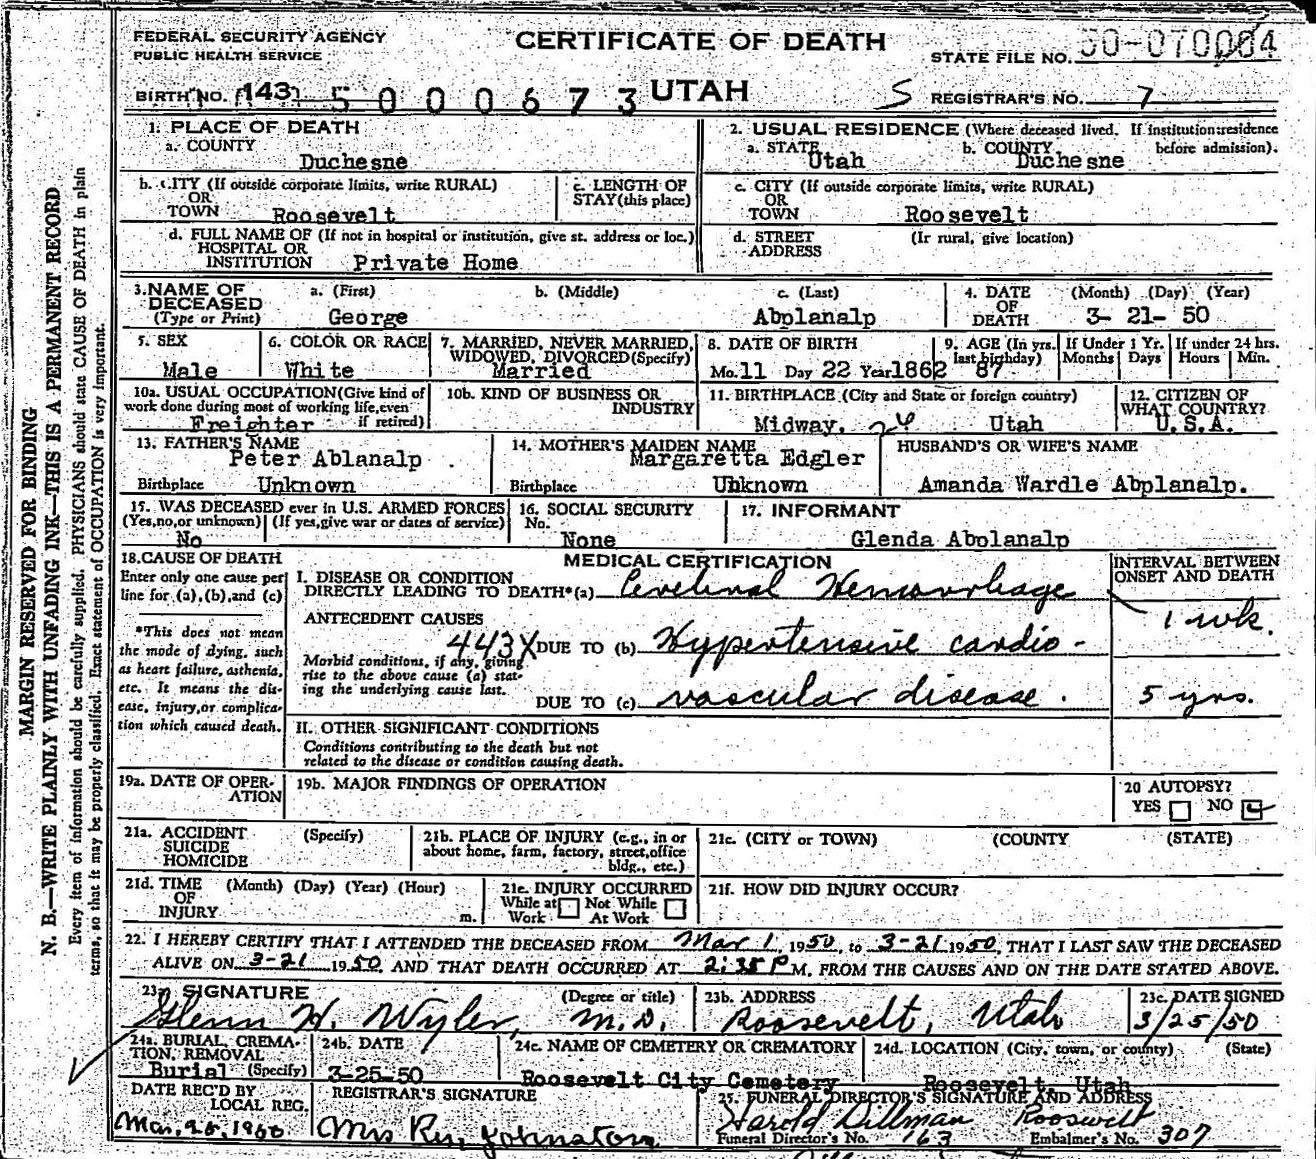 FEDERAL SECURITY AGENCY
PUBLIC HEALTH SERVICE
CERTIFICATE OF DEATH
STATE FILE NO. 50-070064
BIRTH NO. 143 5 0 0 0 6 7 3 UTAH S REGISTRAR'S NO. 7
MARGIN RESERVED FOR BINDING
N. B.—WRITE PLAINLY WITH UNFADING INK—THIS IS A PERMANENT RECORD
Every item of information should be carefully supplied. PHYSICIANS should state CAUSE OF DEATH in plain
terms, so that it may be properly classified. Exact statement of OCCUPATION is very important.
1. PLACE OF DEATH
a. COUNTY
Duchesne
2. USUAL RESIDENCE (Where deceased lived. If institution: residence before admission).
a. STATE Utah b. COUNTY Duchesne
b. CITY (If outside corporate limits, write RURAL)
OR
TOWN Roosevelt
c. LENGTH OF
STAY (this place)
c. CITY (If outside corporate limits, write RURAL)
OR
TOWN Roosevelt
d. FULL NAME OF (If not in hospital or institution, give st. address or loc.)
HOSPITAL OR
INSTITUTION Private Home
d. STREET (If rural, give location)
ADDRESS
3. NAME OF DECEASED
(Type or Print)
a. (First) b. (Middle) c. (Last)
George Abplanalp
4. DATE OF DEATH (Month) (Day) (Year)
3- 21- 50
5. SEX
Male
6. COLOR OR RACE
White
7. MARRIED, NEVER MARRIED,
WIDOWED, DIVORCED (Specify)
Married
8. DATE OF BIRTH
Mo. 11 Day 22 Year 1862
9. AGE (In yrs. last birthday)
87
If Under 1 Yr. Months Days
If under 24 hrs. Hours Min.
10a. USUAL OCCUPATION (Give kind of
work done during most of working life, even
if retired)
Freighter
10b. KIND OF BUSINESS OR
INDUSTRY
11. BIRTHPLACE (City and State or foreign country)
Midway, Utah
12. CITIZEN OF
WHAT COUNTRY?
U.S.A.
13. FATHER'S NAME
Peter Ablanalp
Birthplace Unknown
14. MOTHER'S MAIDEN NAME
Margaretta Edgler
Birthplace Unknown
HUSBAND'S OR WIFE'S NAME
Amanda Wardle Abplanalp.
15. WAS DECEASED ever in U.S. ARMED FORCES
(Yes, no, or unknown) (If yes, give war or dates of service)
No
16. SOCIAL SECURITY
No.
None
17. INFORMANT
Glenda Abplanalp
18. CAUSE OF DEATH
Enter only one cause per
line for (a), (b), and (c)
*This does not mean
the mode of dying, such
as heart failure, asthenia,
etc. It means the dis-
ease, injury, or complica-
tion which caused death.
MEDICAL CERTIFICATION
I. DISEASE OR CONDITION
DIRECTLY LEADING TO DEATH*(a) Cerebral Hemorrhage
ANTECEDENT CAUSES
443X DUE TO (b) Hypertensive cardio-
Morbid conditions, if any, giving
rise to the above cause (a) stat-
ing the underlying cause last.
DUE TO (c) vascular disease.
INTERVAL BETWEEN
ONSET AND DEATH
1 wk.
5 yrs.
II. OTHER SIGNIFICANT CONDITIONS
Conditions contributing to the death but not
related to the disease or condition causing death.
19a. DATE OF OPER-
ATION
19b. MAJOR FINDINGS OF OPERATION
20 AUTOPSY?
YES NO
21a. ACCIDENT (Specify)
SUICIDE
HOMICIDE
21b. PLACE OF INJURY (e.g., in or
about home, farm, factory, street, office
bldg., etc.)
21c. (CITY or TOWN) (COUNTY) (STATE)
21d. TIME (Month) (Day) (Year) (Hour)
OF
INJURY m.
21e. INJURY OCCURRED
While at Not While
Work At Work
21f. HOW DID INJURY OCCUR?
22. I HEREBY CERTIFY THAT I ATTENDED THE DECEASED FROM Mar 1, 1950, to 3-21 1950, THAT I LAST SAW THE DECEASED
ALIVE ON 3-21 1950, AND THAT DEATH OCCURRED AT 2:35 P M. FROM THE CAUSES AND ON THE DATE STATED ABOVE.
23a SIGNATURE (Degree or title)
Glenn W. Wyler, M.D.
23b. ADDRESS
Roosevelt, Utah
23c. DATE SIGNED
3/25/50
24a. BURIAL, CREMA-
TION, REMOVAL
Burial (Specify)
24b. DATE
3-25-50
24c. NAME OF CEMETERY OR CREMATORY
Roosevelt City Cemetery
24d. LOCATION (City, town, or county) (State)
Roosevelt, Utah
DATE REC'D BY
LOCAL REG.
REGISTRAR'S SIGNATURE
Johnston
25. FUNERAL DIRECTOR'S SIGNATURE AND ADDRESS
Harold Dillman Roosevelt
Funeral Director's No. 163 Embalmer's No. 307